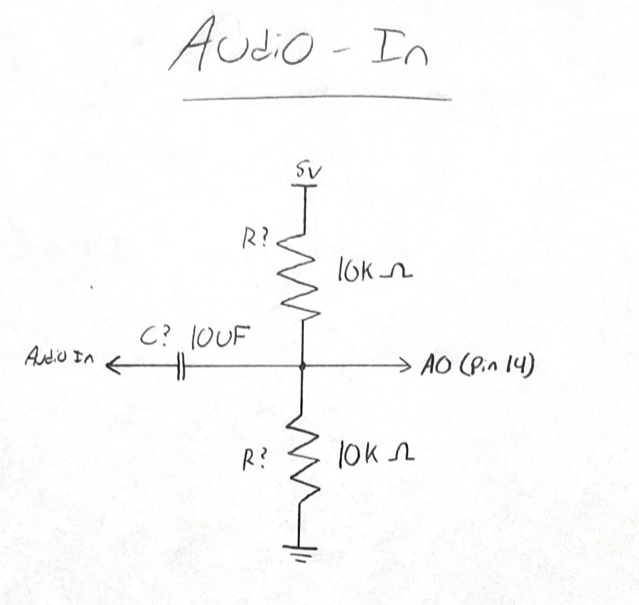 Audio - In
5V
R?
10K Ω
C? 10UF
Audio In
A0 (Pin 14)
R?
10K Ω